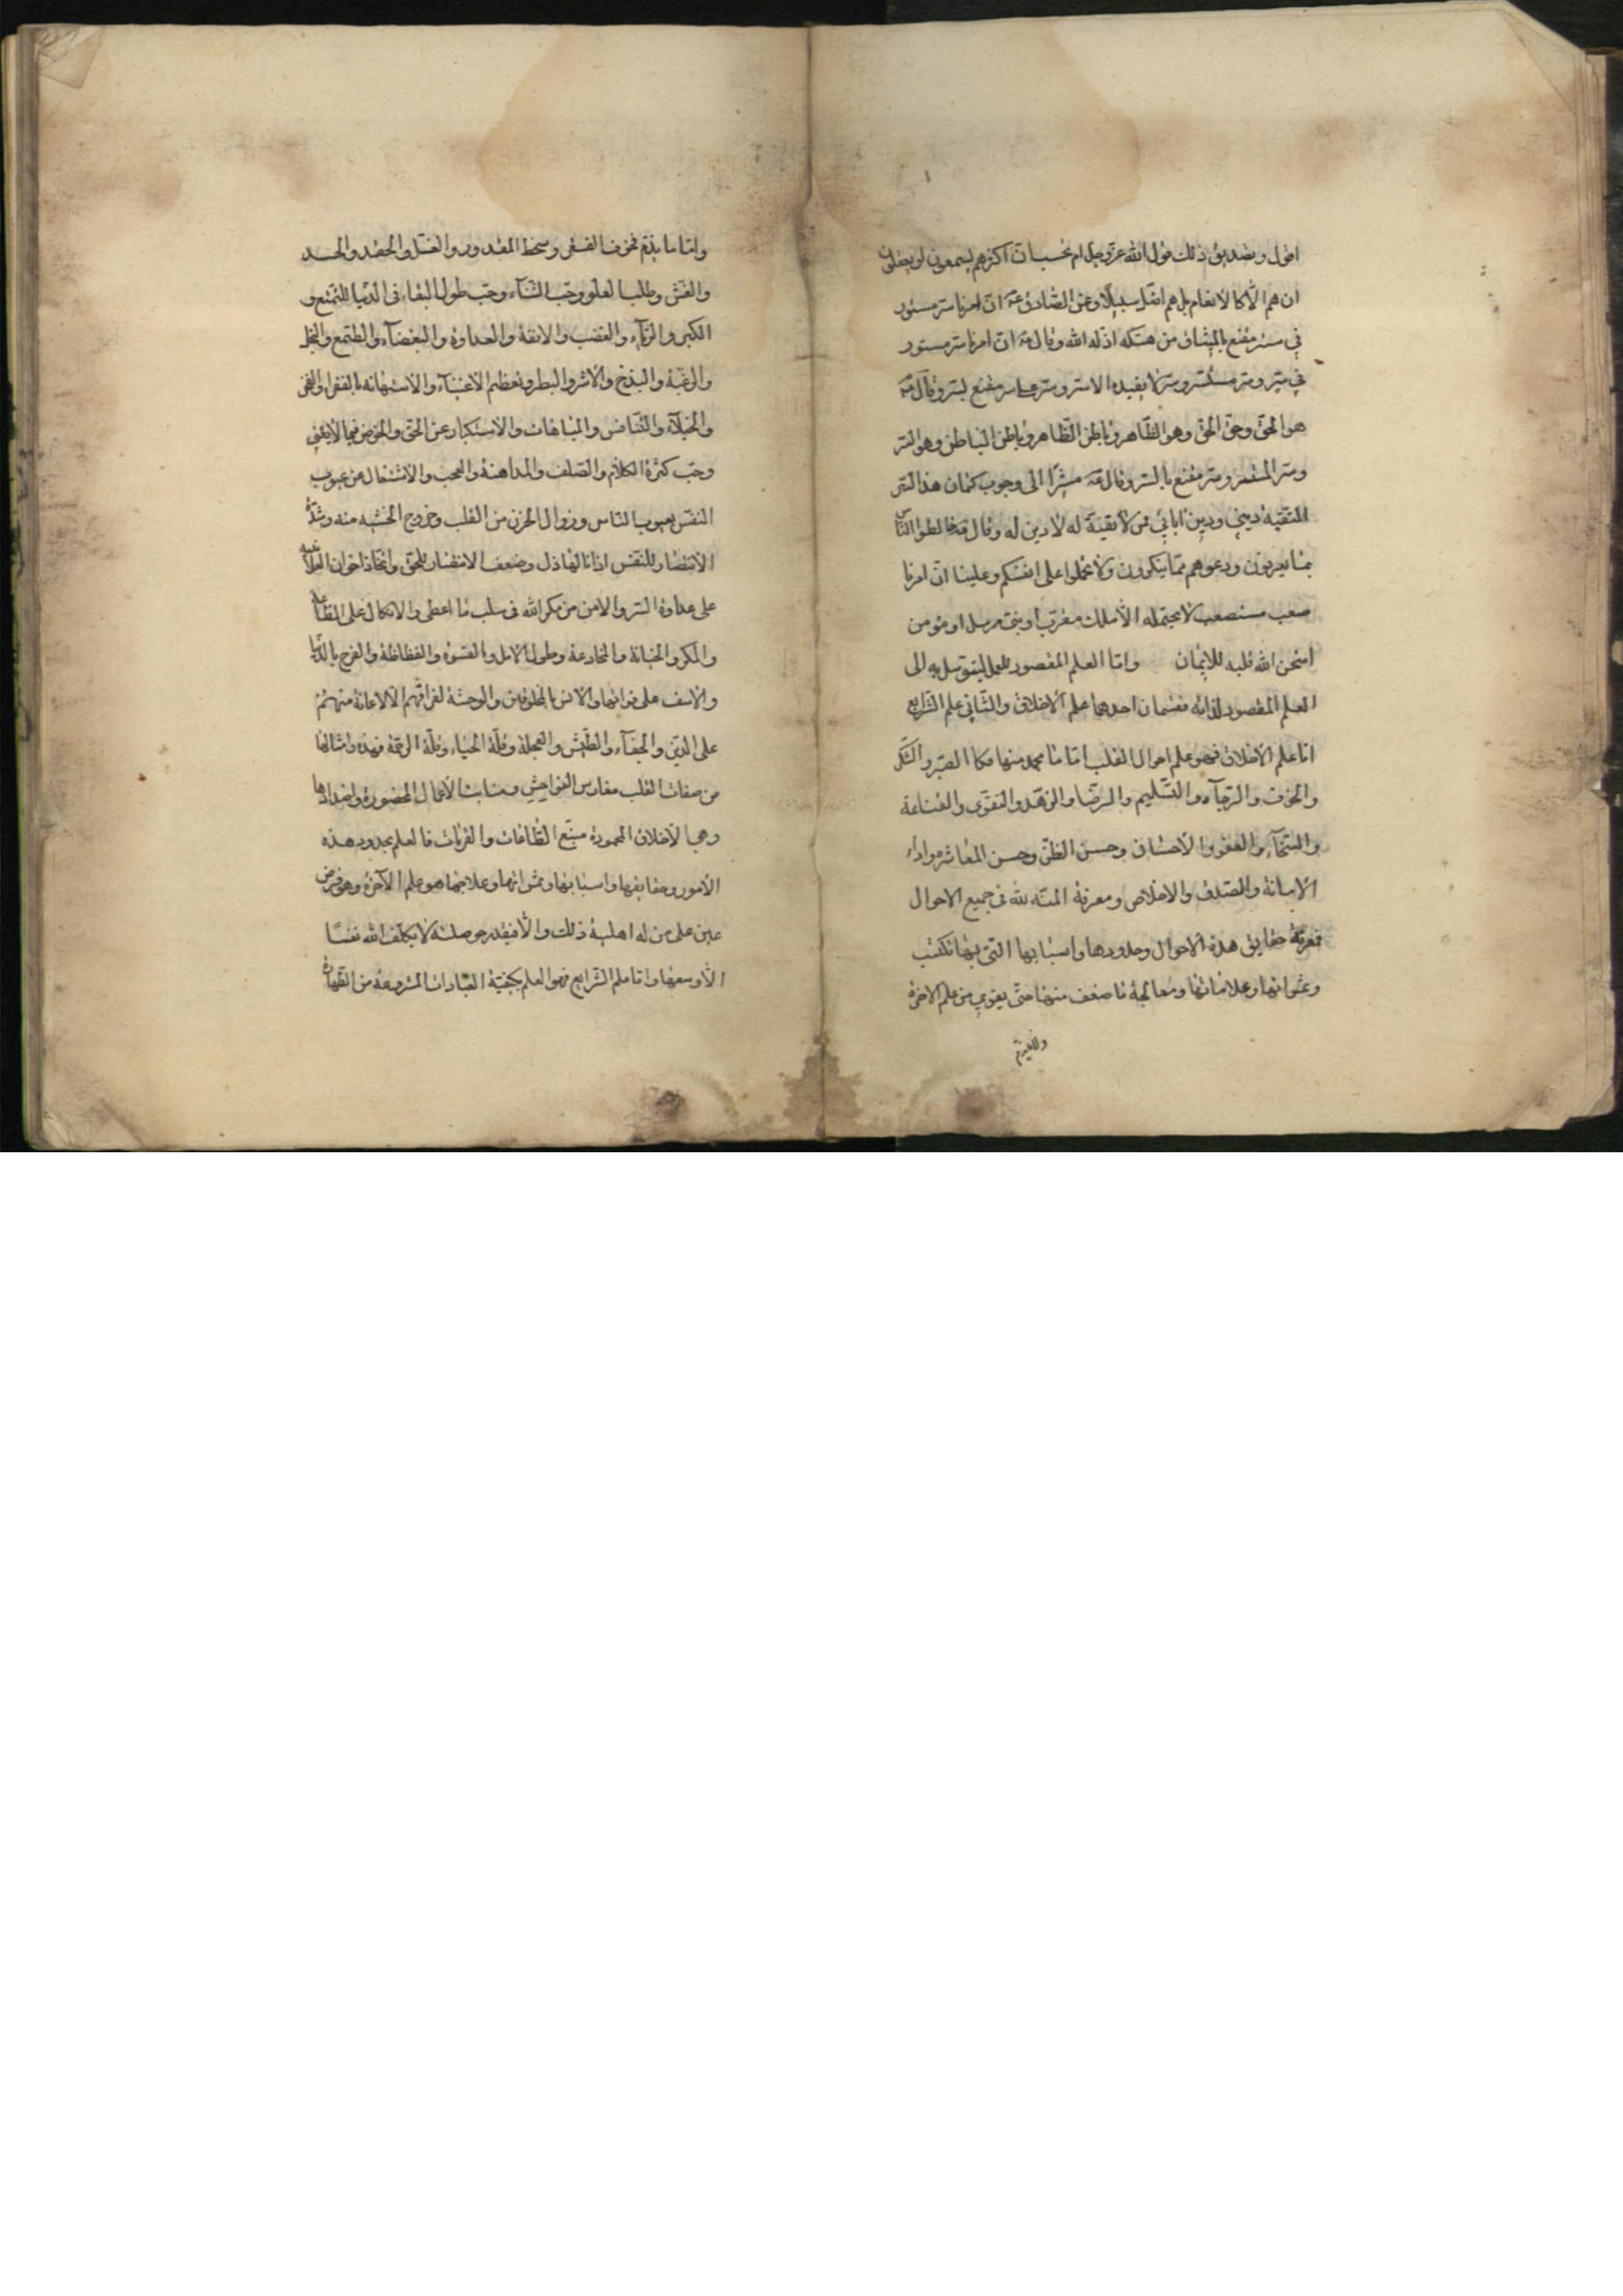 اقول وتصديق ذلك قول الله عز وجل ام تحسب ان اكثرهم يسمعون او يعقلون
ان هم الّا كالانعام بل هم اضل سبيلا وعن الصادق ع انّ امرنا سرّ مستور
في سرّ مقنع بالميثاق من هتكه اذله الله وقال ع انّ امرنا سرّ مستور
في سرّ وسرّ مستسر وسرّ لا يفيده الا سر وسرّ على سر مقنع بسر وقال ع
هو الحقّ وحقّ الحقّ وهو الظّاهر وباطن الظّاهر وباطن الباطن وهو السّر
وسرّ المستسر وسرّ مقنع بالسّر وقال ع مشيرًا الى وجوب كتمان هذا السّر
التقيّة ديني ودين آبائي فمن لا تقيّة له لا دين له وقال ع خالطوا النّاس
بما يعرفون ودعوهم ممّا ينكرون ولا تحملوا على انفسكم وعلينا انّ امرنا
صعب مستصعب لا يحتمله الّا ملك مقرّب او نبيّ مرسل او مؤمن
امتحن الله قلبه للايمان وامّا العلم المقصود للعمل ليتوسّل به الى
العلم المقصود لذاته فقسمان احدهما علم الاخلاق والثّاني علم الشّرايع
امّا علم الاخلاق فهو علم احوال القلب امّا ما يحمد منها فكالصّبر والشّكر
والخوف والرّجاء والتّسليم والرّضا والزهد والتقوى والقناعة
والسّخاء والعفو والاحسان وحسن الظّن وحسن المعاشرة واداء
الامانة والصّدق والاخلاص ومعرفة المنّة لله في جميع الاحوال
فمعرفة حقايق هذه الاحوال وحدودها واسبابها التي بها تكتسب
وثمراتها وعلاماتها ومعالجة ما ضعف منها حتّى يقوي من علم الاخرة
وامّا ما يذمّ فخوف الفقر وسخط المقدور والغلّ والحقد والحسد
والغشّ وطلب العلو وحبّ الثناء وحبّ طول البقاء في الدّنيا للتّمتع و
الكبر والرّياء والغضب والانفة والعداوة والبغضاء والطّمع والبخل
والرغبة والبذخ والاشر والبطر وتعظيم الاغنياء والاستهانة بالفقراء والفخر
والخيلاء والتّنافس والمباهات والاستكبار عن الحقّ والخوض فيما لا يعني
وحبّ كثرة الكلام والصّلف والمداهنة والعجب والاشتغال عن عيوب
النفس بعيوب النّاس وزوال الحزن من القلب وخروج الخشية منه وشدّة
الانتصار للنّفس اذا نالها ذل وضعف الانتصار للحقّ واتّخاذ اخوان العلانية
على عداوة السّر والامن من مكر الله في سلب ما اعطى والاتكال على الطّاعة
والمكر والخيانة والمخادعة وطول الامل والقسوة والفظاظة والفرح بالدّنيا
والاسف على فواتها والانس بالمخلوقين والوحشة لفراقهم الّا لاعانة منهم
على الدّين والجفاء والطّيش والعجلة وقلّة الحياء وقلّة الرحمة فهذه وامثالها
من صفات القلب مغارس الفواحش ومنابت الاعمال المحضورة واضدادها
وهي الاخلاق المحمودة منبع الطّاعات والقربات فالعلم بحدود هذه
الامور وحقايقها واسبابها وثمراتها وعلاجها هو علم الآخرة وهو فرض
عين على من له اهلية ذلك والّا فبقدر حوصلته لا يكلّف الله نفسًا
الّا وسعها وامّا علم الشّرايع فهو العلم بكيفيّة العبادات المشروعة من الطّهارة